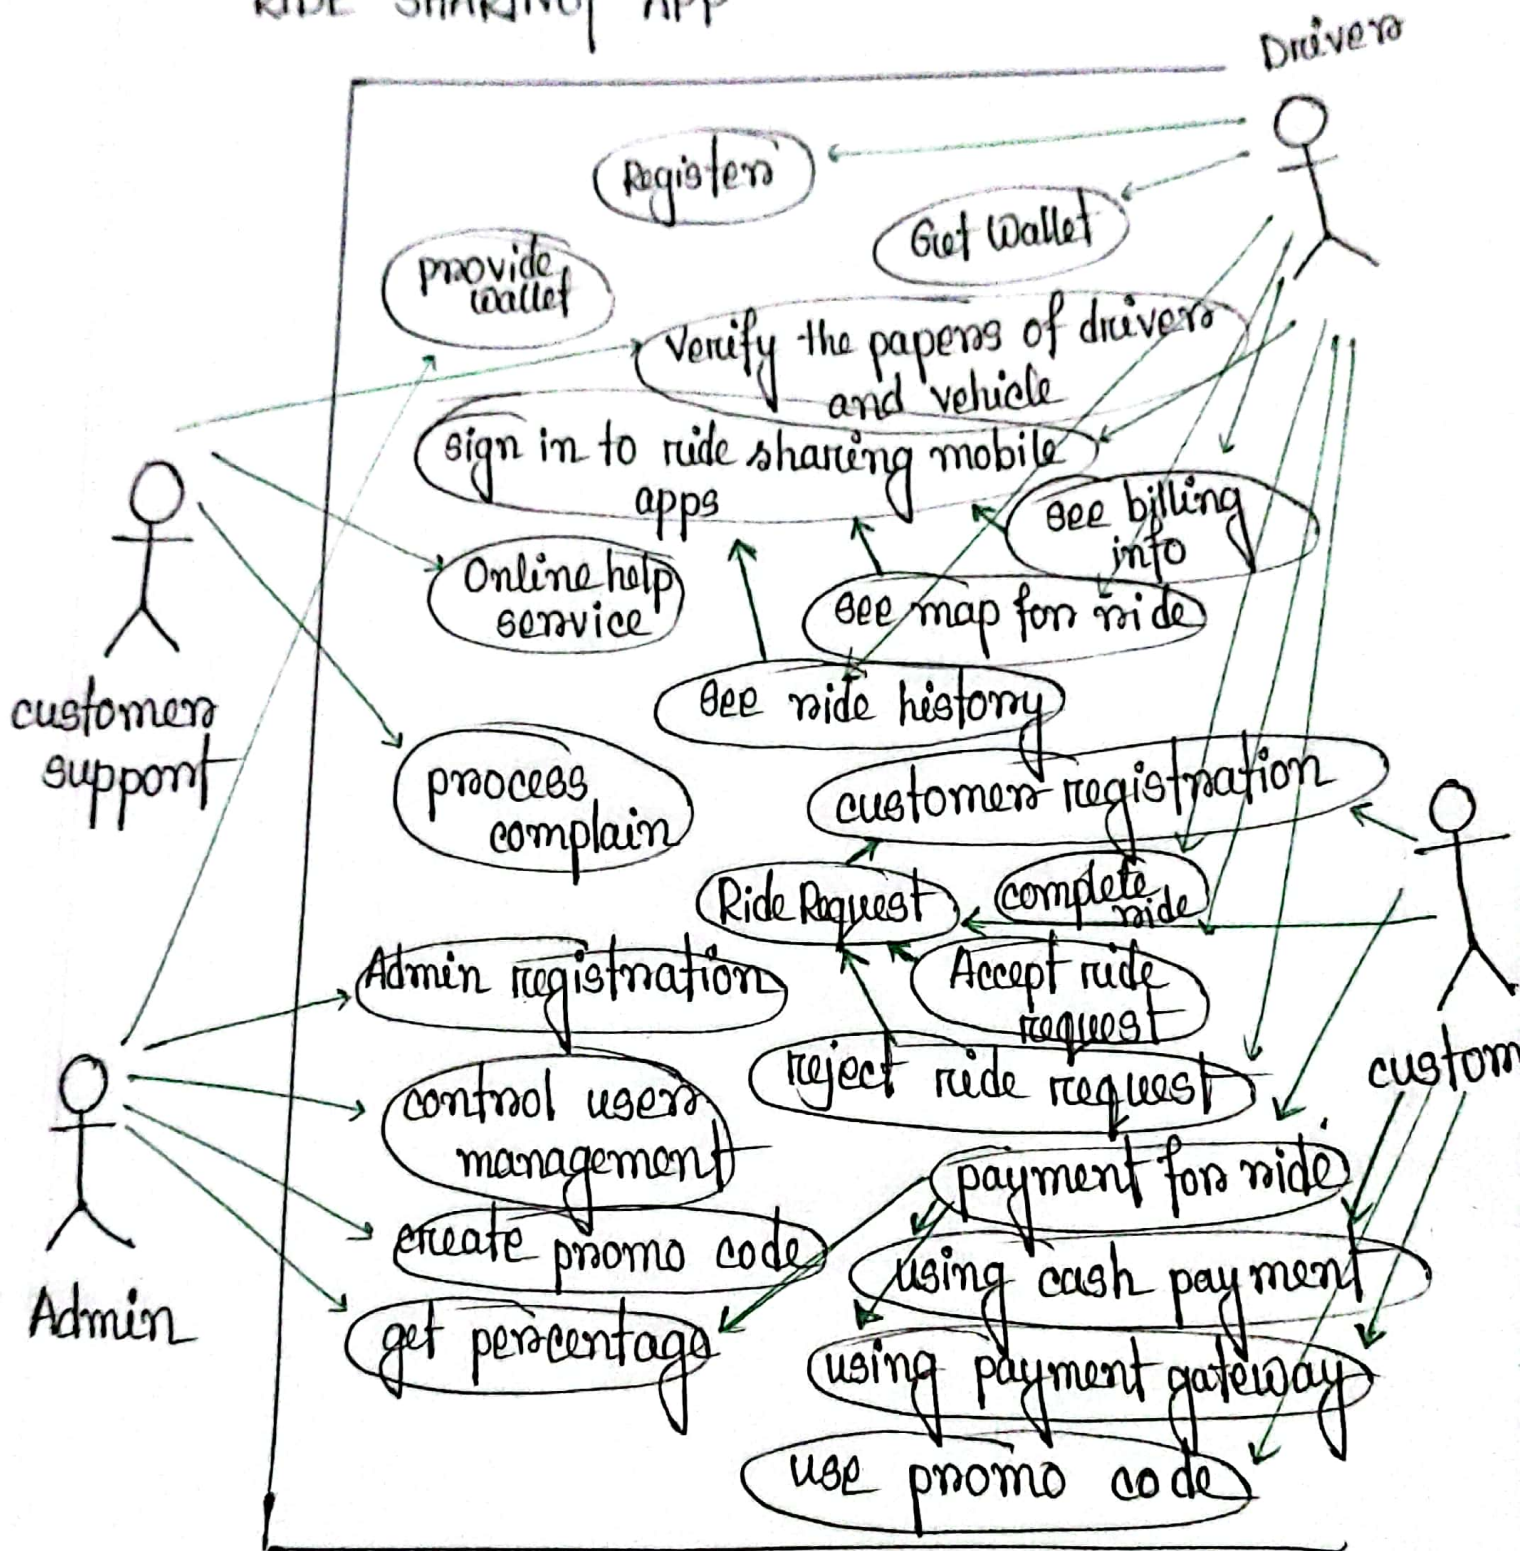 RIDE SHARING APP
Driver
Register
Get Wallet
provide
wallet
Verify the papers of driver
and vehicle
sign in to ride sharing mobile
apps
see billing
info
Online help
service
see map for ride
see ride history
customer
support
process
complain
customer registration
Ride Request
complete
ride
Admin registration
Accept ride
request
reject ride request
custom
control user
management
payment for ride
create promo code
using cash payment
Admin
get percentage
using payment gateway
use promo code